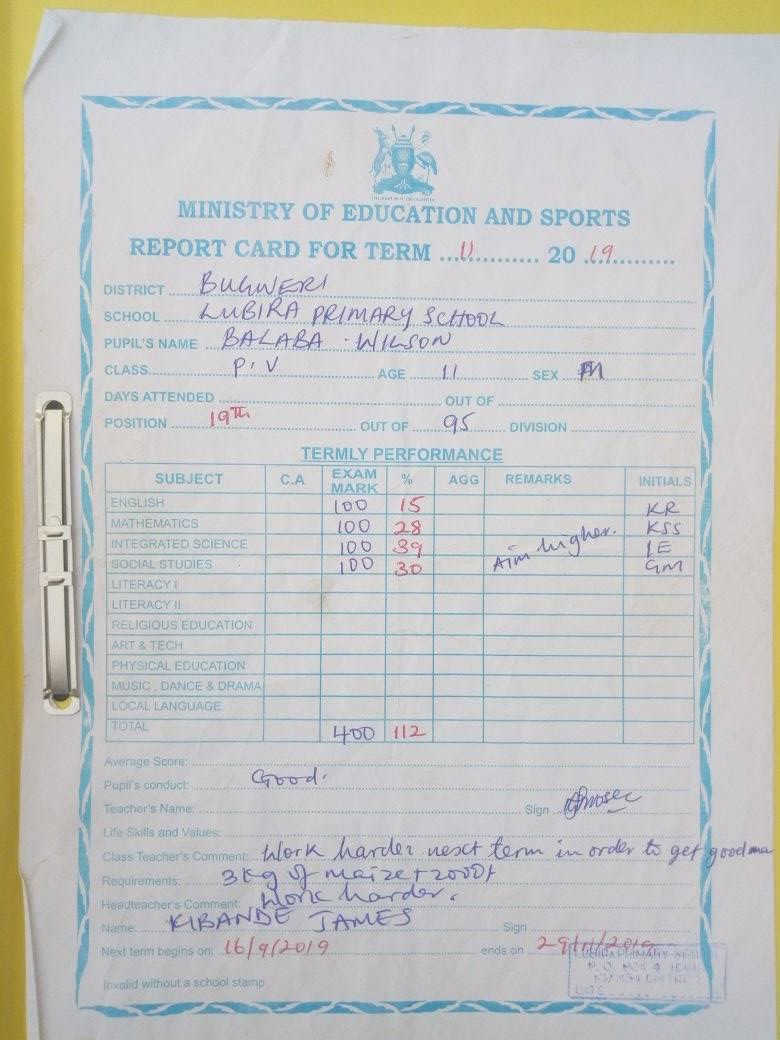 THE REPUBLIC OF UGANDA
MINISTRY OF EDUCATION AND SPORTS
REPORT CARD FOR TERM 11 20 19
DISTRICT BUGWERI
SCHOOL LUBIRA PRIMARY SCHOOL
PUPIL'S NAME BALABA . WILSON
CLASS P.V AGE 11 SEX M
DAYS ATTENDED OUT OF
POSITION 19TH OUT OF 95 DIVISION
TERMLY PERFORMANCE
SUBJECT C.A EXAM MARK % AGG REMARKS INITIALS
ENGLISH 100 15 KR
MATHEMATICS 100 28 KSS
INTEGRATED SCIENCE 100 39 Aim higher. IE
SOCIAL STUDIES 100 30 GM
LITERACY I
LITERACY II
RELIGIOUS EDUCATION
ART & TECH
PHYSICAL EDUCATION
MUSIC , DANCE & DRAMA
LOCAL LANGUAGE
TOTAL 400 112
Average Score:
Pupil's conduct: Good.
Teacher's Name: Sign
Life Skills and Values:
Class Teacher's Comment: Work harder next term in order to get good ma
Requirements: 3kg of maize +
Headteacher's Comment: Work harder.
Name: KIBANDE JAMES Sign
Next term begins on: 16/9/2019 ends on 29/11/2019
LUBIRA PRIMARY
P. O. BOX
DATE
Invalid without a school stamp